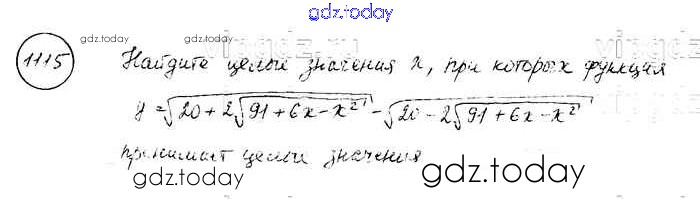 gdz.today
1115
gdz.today
Найдите целые значения x, при которых функция
y = √(20 + 2√(91 + 6x - x²)) - √(20 - 2√(91 + 6x - x²))
принимает целые значения
gdz.today
gdz.today